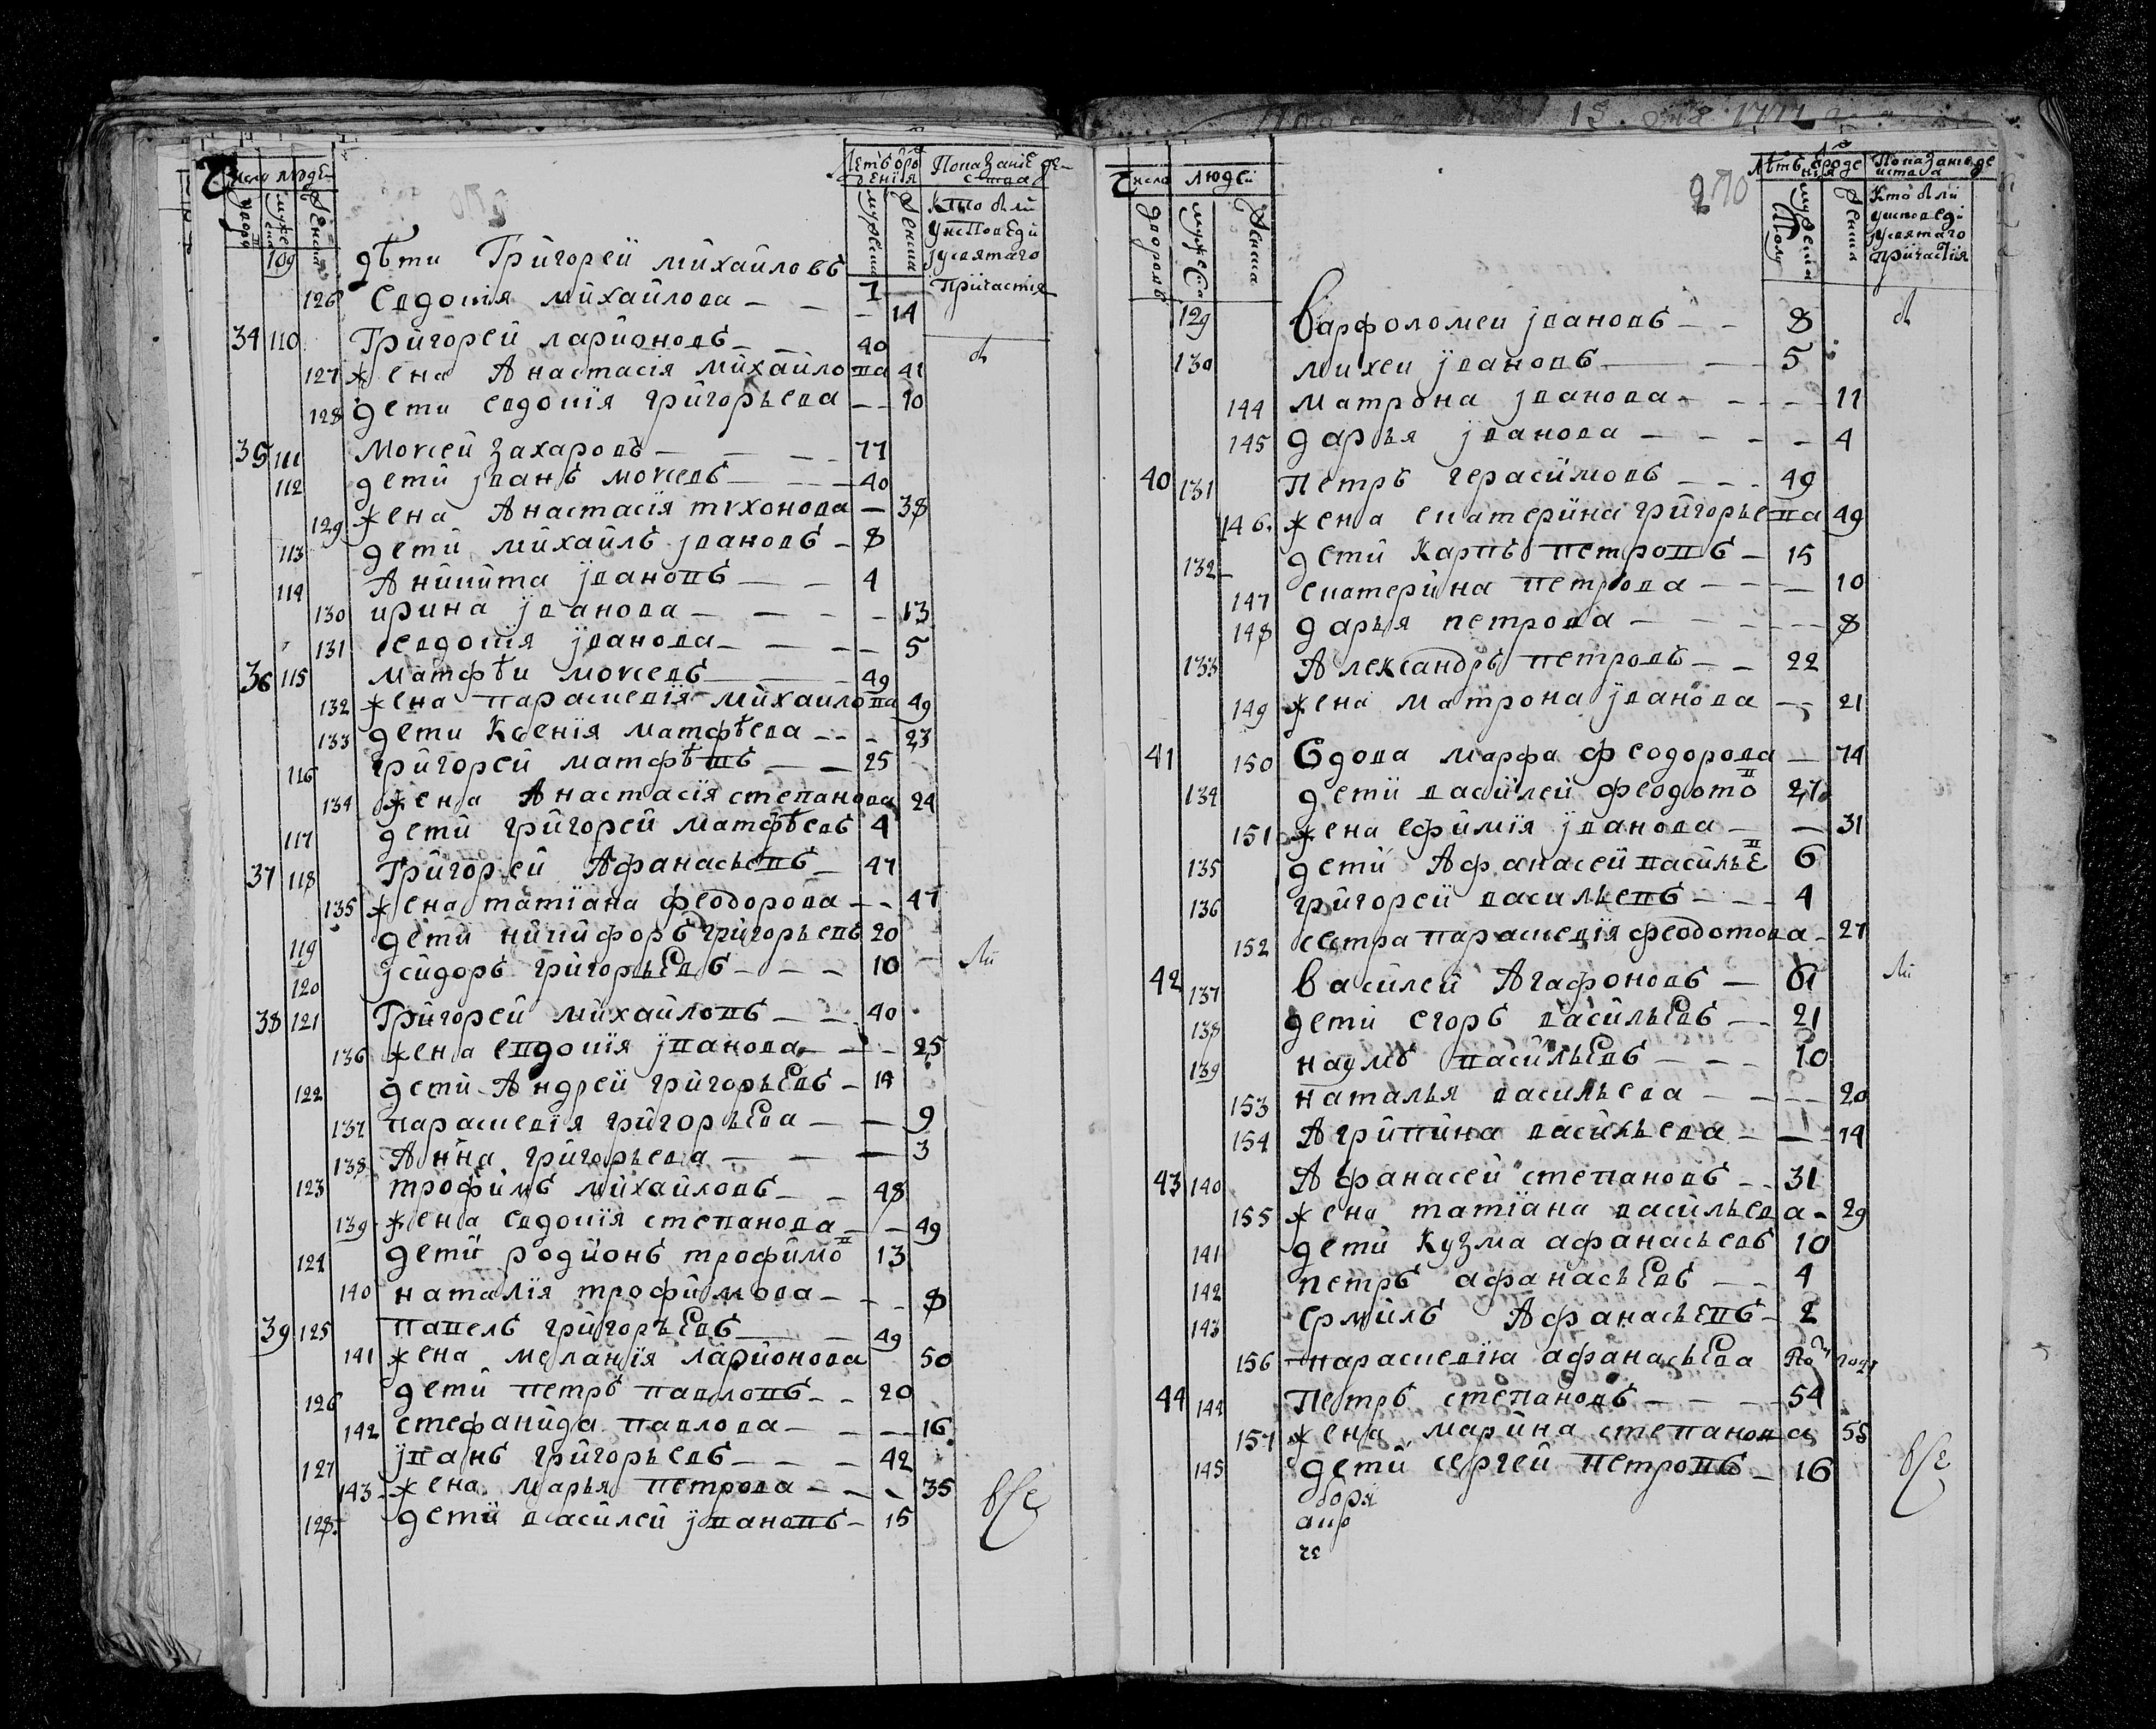 Число людеи
Летъ ѿро
дения
Показание де
иства
двори
мужеска
женска
мужеска
женска
Кто были
уисповеди
ісвятаго
Причастия
109 дѣти Григореи михаиловъ 7
126 Евдокия михаилова — — — 14
34 110 Григореи ларионовъ — — 40
127 жена Анастасія михаилова 41
128 дети евдокия григорьева — — 10
35 111 Моисеи Захаровъ — — — 77
112 дети іванъ моисевъ — — — 40
129 жена Анастасія тихонова — 38
113 дети михаилъ івановъ — 8
114 Аникита івановъ — — 4
130 ирина іванова — — — — 13
131 евдокия іванова — — — — 5
36 115 матфѣи моисевъ — — 49
132 жена параскевія михаилова 49
133 дети Ксения матфѣева — — — 23
116 григореи матфѣвъ — — 25
134 жена Анастасія степанова 24
117 дети григореи матфѣевъ 4
37 118 Григореи Афанасьевъ — 47
135 жена татіана феодорова — — 47
119 дети никифоръ григорьевъ 20
120 ісидоръ григорьевъ — — — 10
ли
38 121 Григореи михаиловъ — — 40
136 жена евдокия іванова — — — 25
122 дети Андреи григорьевъ — 14
137 параскевія григорьева — — 9
138 Анна григорьева — — — 3
123 трофимъ михаиловъ — — 48
139 жена евдокия степанова — — 49
124 дети родионъ трофимов 13
140 наталія трофимова — — — 8
39 125 павелъ григорьевъ — — 49
141 жена меланія ларионова 50
126 дети петръ павловъ — — 20
142 стефанида павлова — — — 16
127 іванъ григорьевъ — — — 42
143 жена марья петрова — — — 35
128 дети василеи івановъ — 15
все
1777
270
Число людеи
Лѣтъ ѿроде
ния
Показание де
иства
дворовъ
мужеска
женска
мужеска
полу
женска
Кто были
уисповеди
ісвятаго
причастія
129 Варфоломеи івановъ — — 8
130 михеи івановъ — — — 5
144 матрона іванова — — — — 11
145 дарья іванова — — — — 4
40 131 Петръ герасимовъ — — — 49
146 жена екатерина григорьева 49
132 дети Карпъ петровъ — 15
147 екатерина петрова — — — 10
148 дарья петрова — — — — 8
133 Александръ петровъ — — 22
149 жена матрона іванова — — 21
41 150 Вдова марфа феодорова — 74
134 дети василеи феодотов 27
151 жена ефимія іванова — — 31
135 дети Афанасеи василье в 6
136 григореи васильевъ — — — 4
152 сестра параскевія феодотова — 27
42 137 Василеи Агафоновъ — 61
ли
138 дети егоръ васильевъ — — 21
139 наумъ васильевъ — — — 10
153 наталья васильева — — — — 20
154 Агрипина васильева — — — 14
43 140 Афанасеи степановъ — — 31
155 жена татіана васильева — 29
141 дети Кузма афанасьевъ 10
142 петръ афанасьевъ — — 4
143 ермилъ Афанасьевъ — 2
156 параскевія афанасьева
44 144 Петръ степановъ — — — — 54
157 жена марина степанова 55
145 дети сергеи петровъ — 16
все